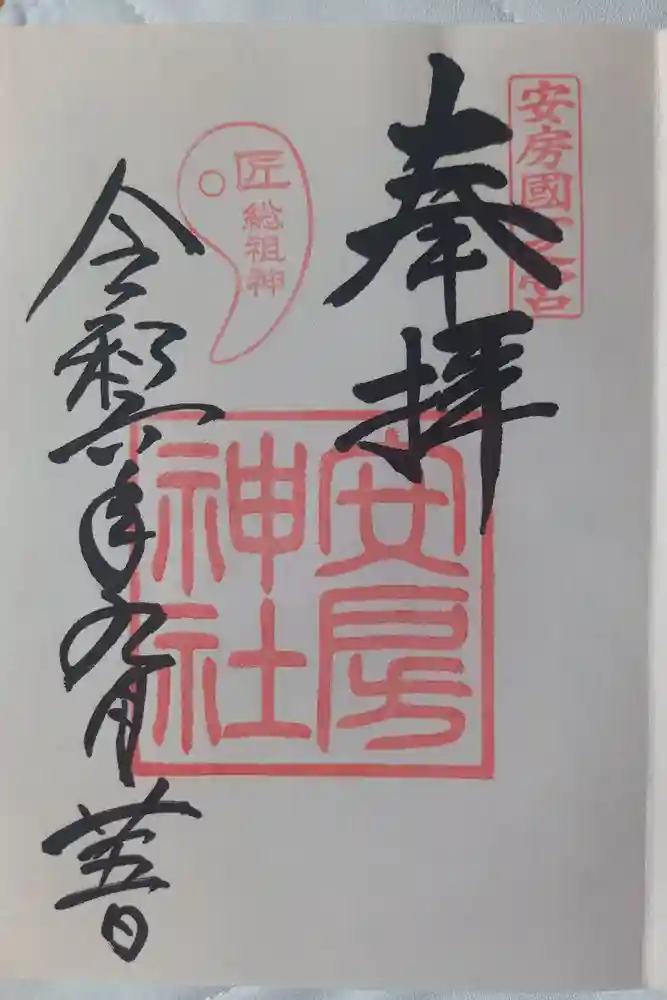 安房國一之宮
奉拝
安房
神社
匠 総祖神
令和六年九月廿五日